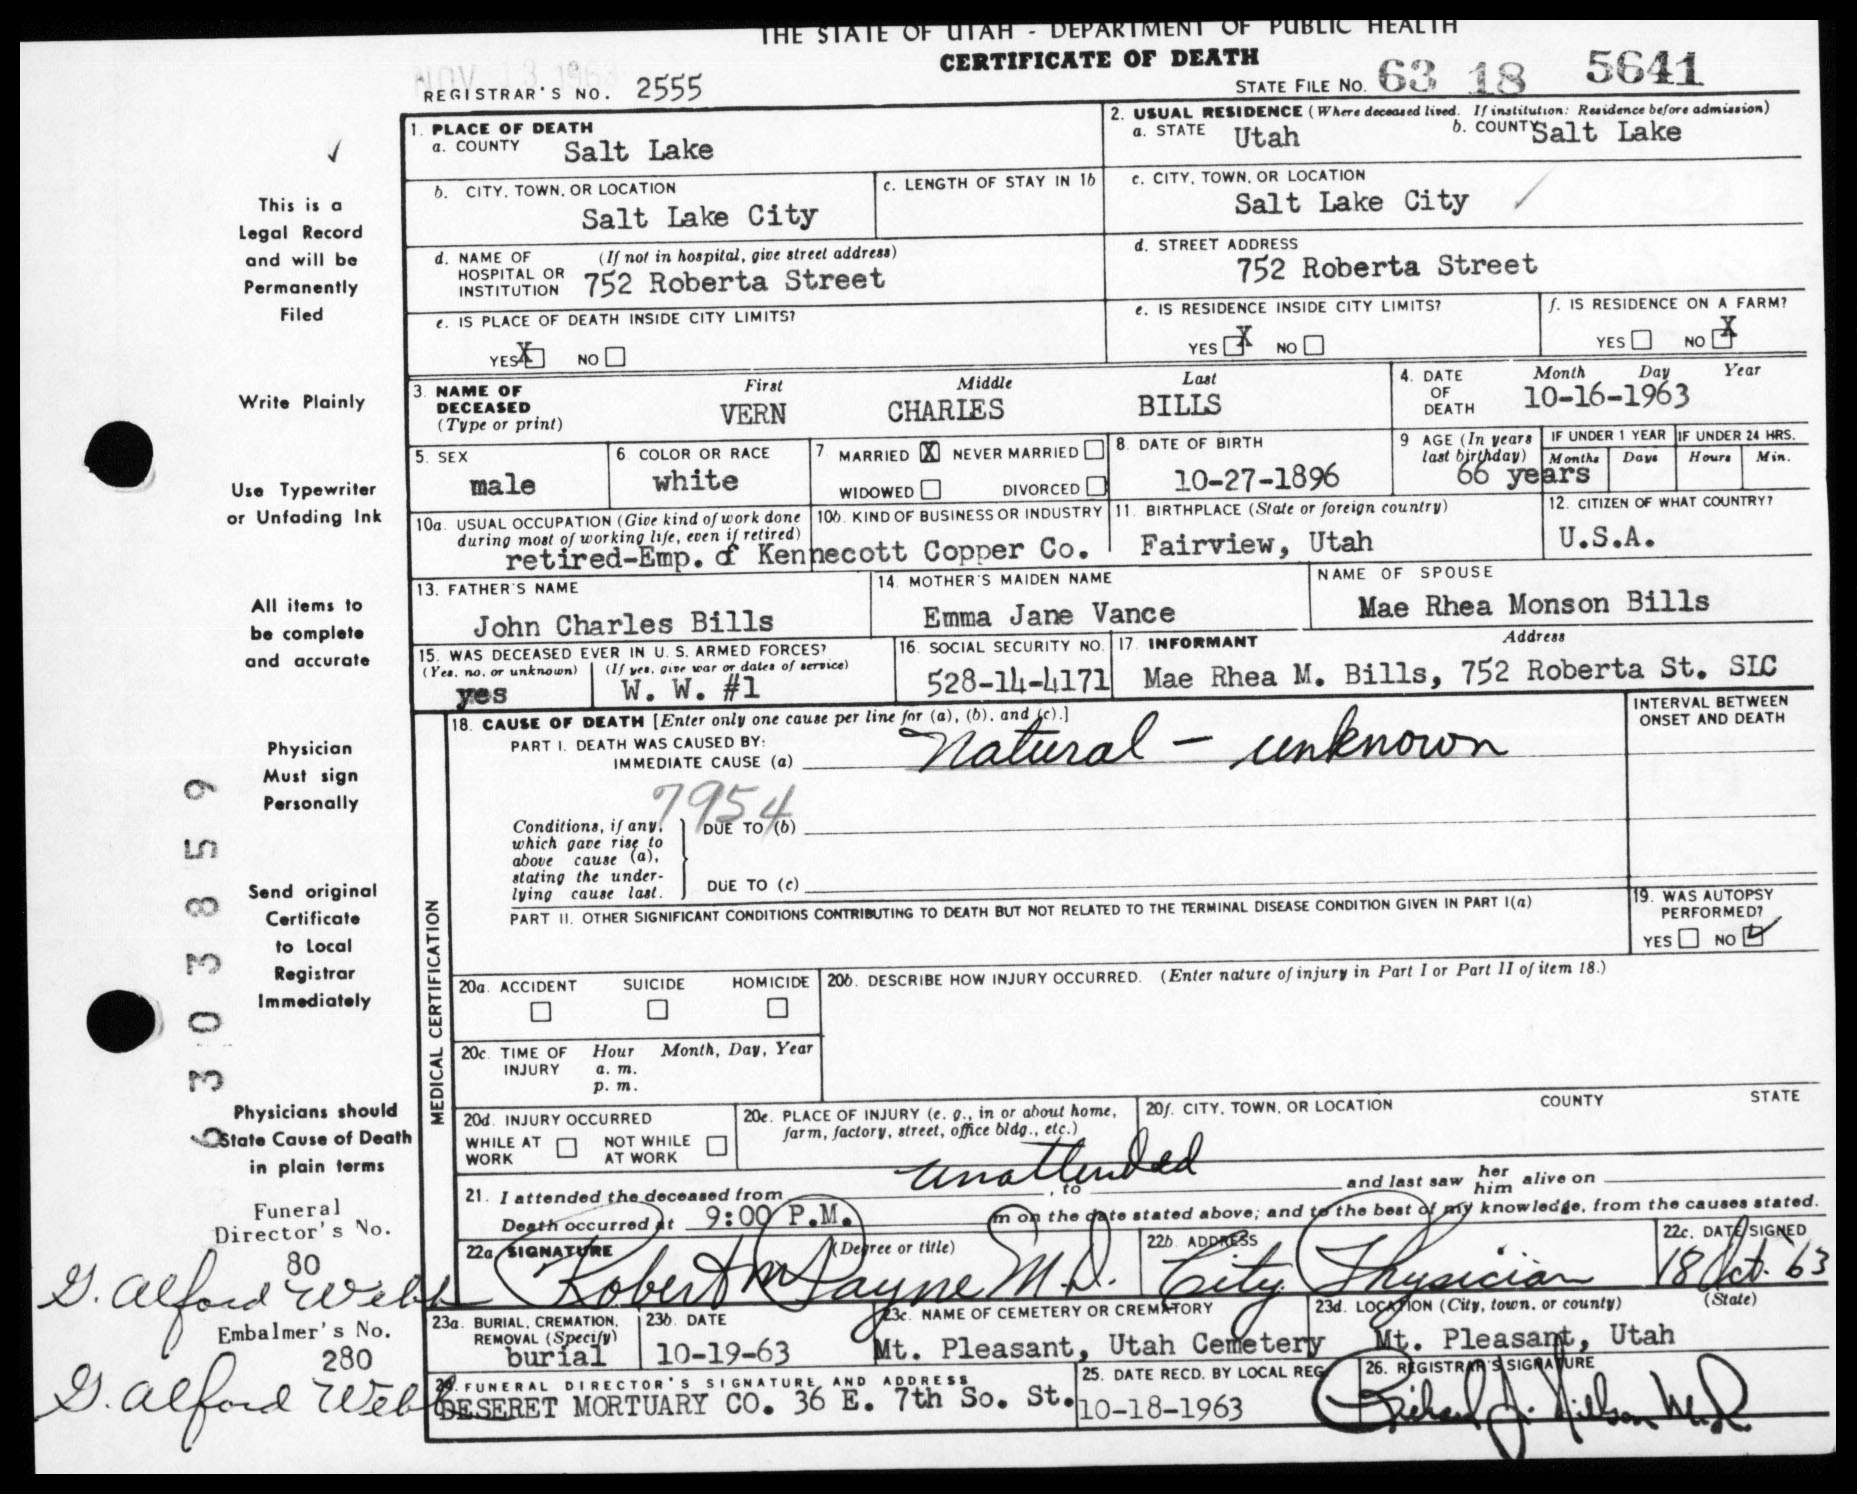 THE STATE OF UTAH - DEPARTMENT OF PUBLIC HEALTH
CERTIFICATE OF DEATH
NOV 18 1963
REGISTRAR'S NO. 2555
STATE FILE NO. 63 18 5641
1. PLACE OF DEATH
a. COUNTY Salt Lake
2. USUAL RESIDENCE (Where deceased lived. If institution: Residence before admission)
a. STATE Utah b. COUNTY Salt Lake
b. CITY, TOWN, OR LOCATION
Salt Lake City
c. LENGTH OF STAY IN 1b
c. CITY, TOWN, OR LOCATION
Salt Lake City
d. NAME OF HOSPITAL OR INSTITUTION (If not in hospital, give street address)
752 Roberta Street
d. STREET ADDRESS
752 Roberta Street
e. IS PLACE OF DEATH INSIDE CITY LIMITS?
YES X NO
e. IS RESIDENCE INSIDE CITY LIMITS?
YES X NO
f. IS RESIDENCE ON A FARM?
YES NO X
3. NAME OF DECEASED (Type or print)
First Middle Last
VERN CHARLES BILLS
4. DATE OF DEATH Month Day Year
10-16-1963
5. SEX
male
6 COLOR OR RACE
white
7 MARRIED X NEVER MARRIED
WIDOWED DIVORCED
8. DATE OF BIRTH
10-27-1896
9 AGE (In years last birthday)
66 years
IF UNDER 1 YEAR
Months Days
IF UNDER 24 HRS.
Hours Min.
10a. USUAL OCCUPATION (Give kind of work done during most of working life, even if retired)
10b. KIND OF BUSINESS OR INDUSTRY
retired-Emp. of Kennecott Copper Co.
11. BIRTHPLACE (State or foreign country)
Fairview, Utah
12. CITIZEN OF WHAT COUNTRY?
U.S.A.
13. FATHER'S NAME
John Charles Bills
14. MOTHER'S MAIDEN NAME
Emma Jane Vance
NAME OF SPOUSE
Mae Rhea Monson Bills
15. WAS DECEASED EVER IN U. S. ARMED FORCES?
(Yes, no, or unknown) (If yes, give war or dates of service)
yes W. W. #1
16. SOCIAL SECURITY NO.
528-14-4171
17 INFORMANT Address
Mae Rhea M. Bills, 752 Roberta St. SLC
MEDICAL CERTIFICATION
18. CAUSE OF DEATH [Enter only one cause per line for (a), (b), and (c).]
PART I. DEATH WAS CAUSED BY:
IMMEDIATE CAUSE (a) Natural - unknown
INTERVAL BETWEEN ONSET AND DEATH
7954
Conditions, if any, which gave rise to above cause (a), stating the underlying cause last.
DUE TO (b)
DUE TO (c)
PART II. OTHER SIGNIFICANT CONDITIONS CONTRIBUTING TO DEATH BUT NOT RELATED TO THE TERMINAL DISEASE CONDITION GIVEN IN PART I(a)
19. WAS AUTOPSY PERFORMED?
YES NO ✓
20a. ACCIDENT SUICIDE HOMICIDE
20b. DESCRIBE HOW INJURY OCCURRED. (Enter nature of injury in Part I or Part II of item 18.)
20c. TIME OF INJURY Hour Month, Day, Year
a. m.
p. m.
20d. INJURY OCCURRED
WHILE AT WORK NOT WHILE AT WORK
20e. PLACE OF INJURY (e. g., in or about home, farm, factory, street, office bldg., etc.)
20f. CITY, TOWN, OR LOCATION COUNTY STATE
21. I attended the deceased from unattended, to and last saw her him alive on
Death occurred at 9:00 P.M. m on the date stated above; and to the best of my knowledge, from the causes stated.
22a. SIGNATURE (Degree or title)
Robert M Payne M.D.
22b. ADDRESS
City Physician
22c. DATE SIGNED
18 Oct. '63
23a. BURIAL, CREMATION, REMOVAL (Specify)
burial
23b. DATE
10-19-63
23c. NAME OF CEMETERY OR CREMATORY
Mt. Pleasant, Utah Cemetery
23d. LOCATION (City, town, or county) (State)
Mt. Pleasant, Utah
24. FUNERAL DIRECTOR'S SIGNATURE AND ADDRESS
DESERET MORTUARY CO. 36 E. 7th So. St.
25. DATE RECD. BY LOCAL REG.
10-18-1963
26. REGISTRAR'S SIGNATURE
Richard J. Nilson M.D.
This is a
Legal Record
and will be
Permanently
Filed
Write Plainly
Use Typewriter
or Unfading Ink
All items to
be complete
and accurate
Physician
Must sign
Personally
Send original
Certificate
to Local
Registrar
Immediately
Physicians should
State Cause of Death
in plain terms
Funeral
Director's No.
80
G. Alford Webb
Embalmer's No.
280
G. Alford Webb
63030859